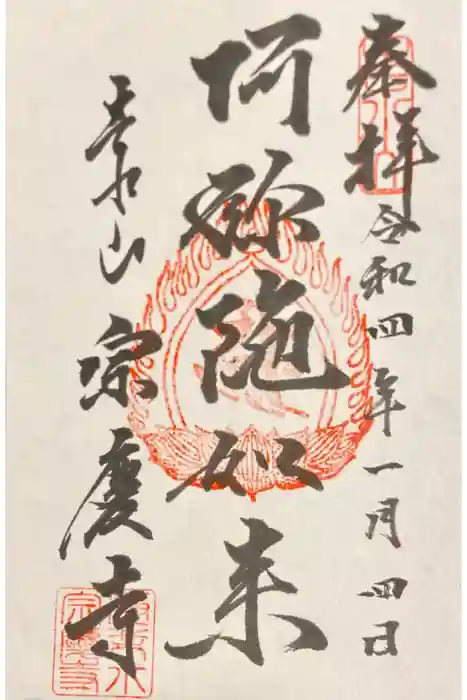 奉拝 令和四年一月四日
阿弥陀如来
吉水山 宗慶寺